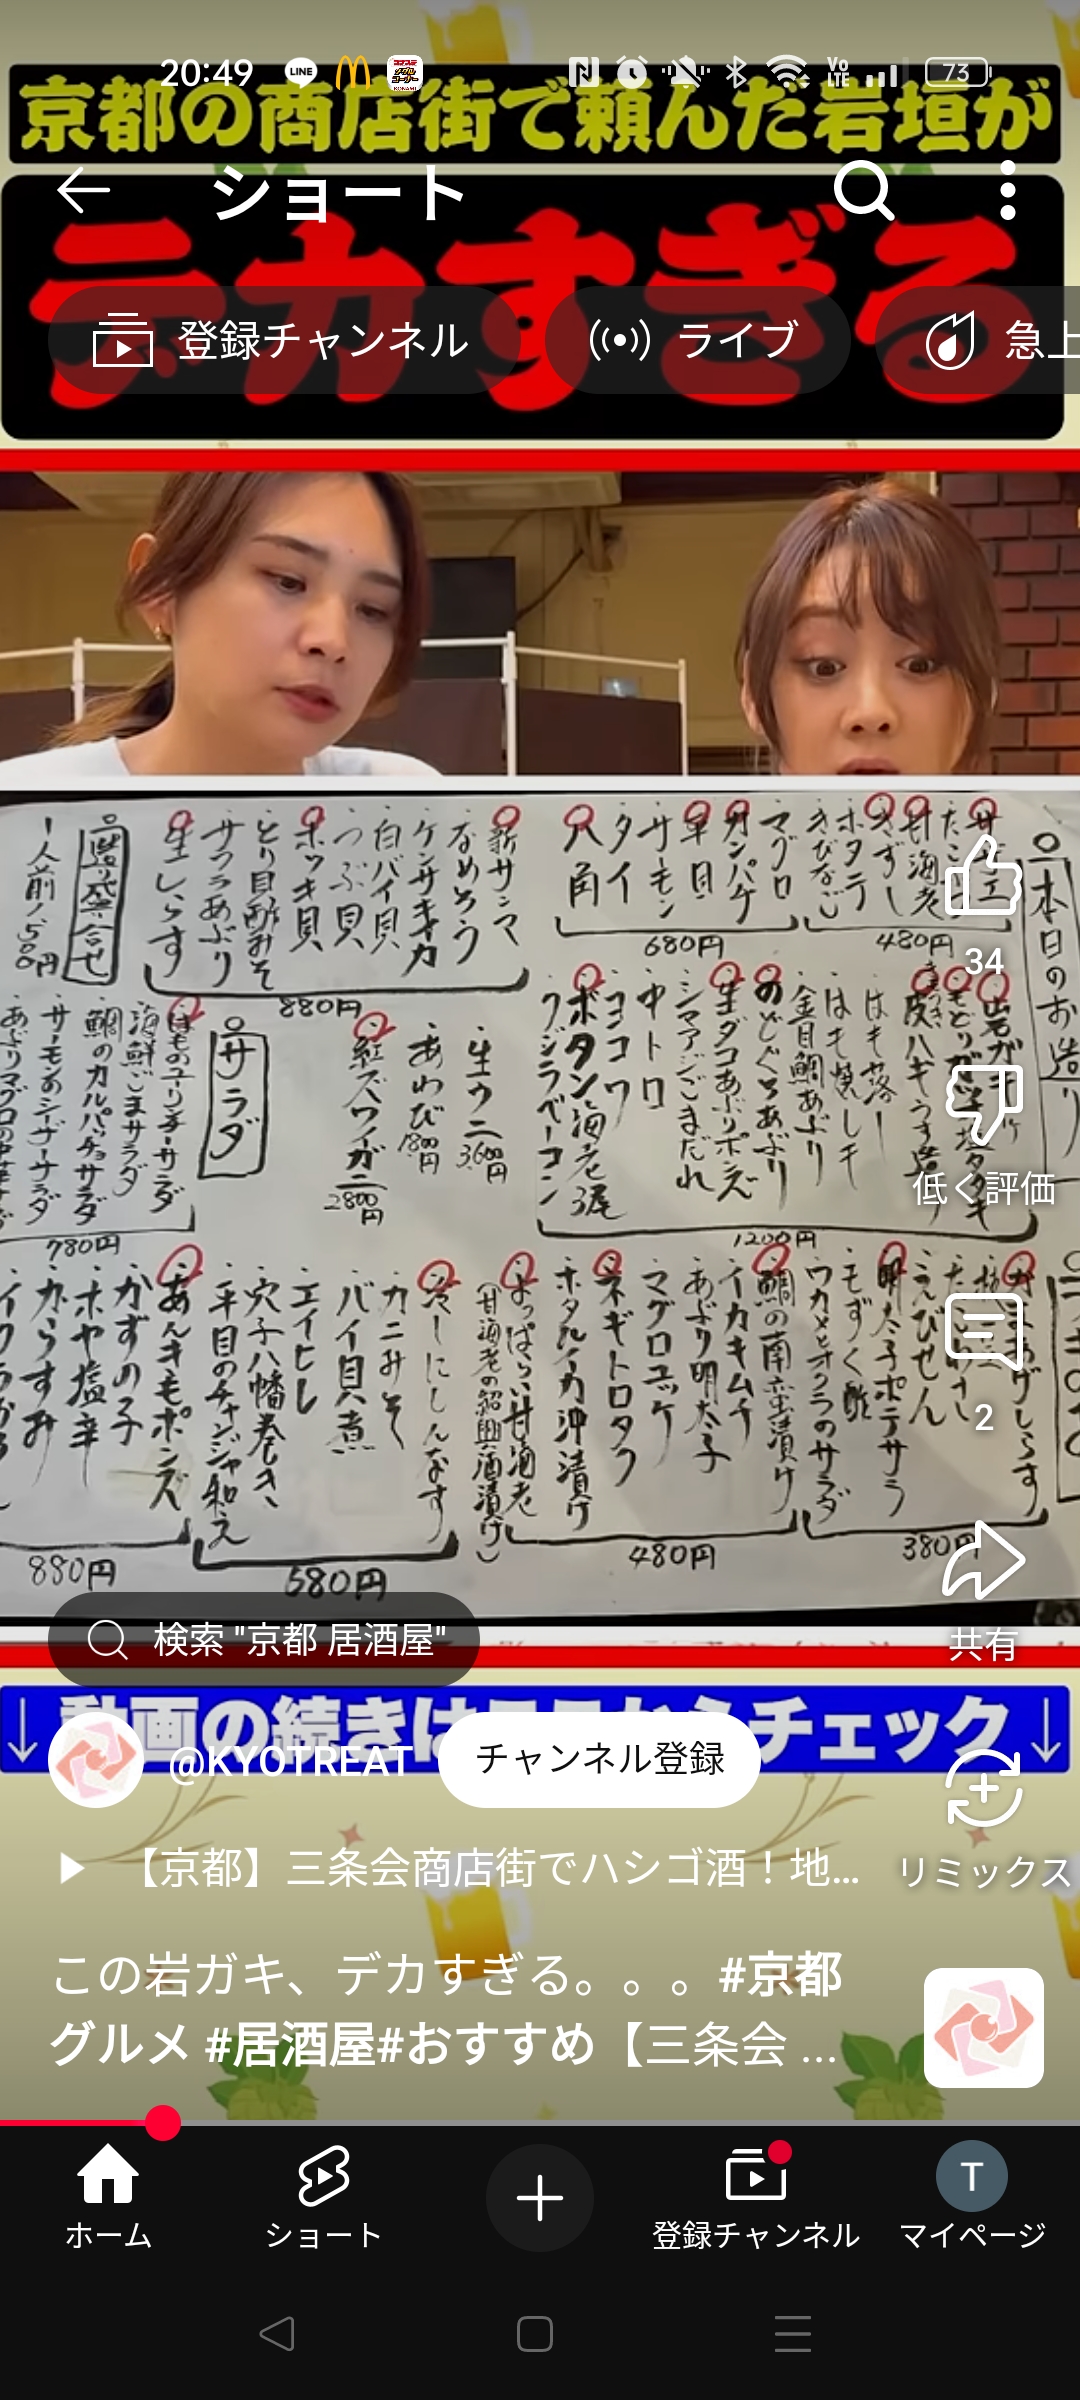 20:49
LINE
73
京都の商店街で頼んだ岩垣が
ショート
デカすぎる
登録チャンネル
ライブ
急上
本日のお造り
たこ
甘海老
きずし
ホタテ
きびなご
480円
マグロ
カンパチ
平目
サーモン
タイ
八角
680円
新サンマ
なめろう
ケンサキイカ
白バイ貝
つぶ貝
ホッキ貝
とり貝酢みそ
サワラあぶり
生しらす
880円
盛り合せ
一人前1,500円
岩ガキ
皮ハギうす造り
はも落し
はも焼しも
金目鯛あぶり
のどぐろあぶり
生ダコあぶりポン酢
シマアジごまだれ
中トロ
ヨコワ
ボタン海老3尾
クジラベーコン
1200円
生ウニ
3600円
あわび
1800円
紅ズワイガニ
2800円
サラダ
はものユーリンチーサラダ
海鮮ごまサラダ
鯛のカルパッチョサラダ
サーモンのシーザーサラダ
780円
えびせん
明太子ポテサラ
もずく酢
ワカメとオクラのサラダ
380円
鯛の南蛮漬け
イカキムチ
あぶり明太子
マグロユッケ
ネギトロタク
ホタルイカ沖漬け
よっぱらい甘海老
(甘海老の紹興酒漬け)
480円
冷しにしんなす
カニみそ
バイ貝煮
エイヒレ
穴子八幡巻き
平目のチャンジャ和え
580円
あんきもポン酢
かずの子
ホヤ塩辛
からすみ
880円
34
低く評価
2
共有
検索 "京都 居酒屋"
↓動画の続きはココからチェック↓
@KYOTREAT
チャンネル登録
リミックス
【京都】三条会商店街でハシゴ酒！地...
この岩ガキ、デカすぎる。。。#京都
グルメ #居酒屋#おすすめ【三条会 ...
ホーム
ショート
登録チャンネル
T
マイページ